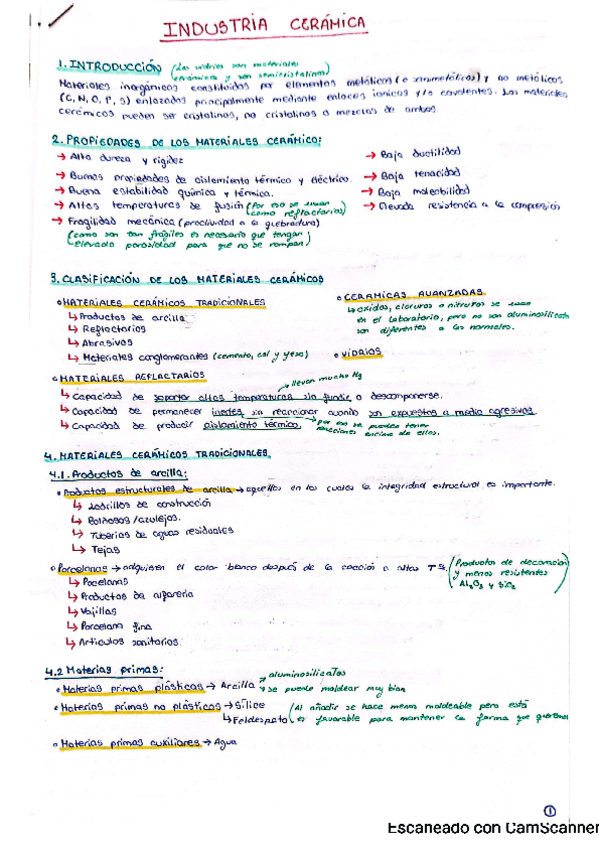 1.
INDUSTRIA CERÁMICA
1. INTRODUCCIÓN (Los vidrios son materiales
cerámicos y son semicristalinos)
Materiales inorgánicos constituidos por elementos metálicos (o semimetálicos) y no metálicos
(C, N, O, P, S) enlazados principalmente mediante enlaces iónicos y/o covalentes. Los materiales
cerámicos pueden ser cristalinos, no cristalinos o mezclas de ambos.
2. PROPIEDADES DE LOS MATERIALES CERÁMICO:
→ Alta dureza y rigidez
→ Buenas propiedades de aislamiento térmico y eléctrico.
→ Buena estabilidad química y térmica.
→ Altas temperaturas de fusión (Por eso se usan
como reflactarios)
→ Fragilidad mecánica (proclividad a la quebradura)
(como son tan frágiles es necesario que tengan
elevada porosidad para que no se rompan)
→ Baja ductilidad
→ Baja tenacidad
→ Baja maleabilidad
→ Elevada resistencia a la compresión
3. CLASIFICACIÓN DE LOS MATERIALES CERÁMICOS
• MATERIALES CERÁMICOS TRADICIONALES
↳ Productos de arcilla
↳ Reflactorios
↳ Abrasivos
↳ Materiales conglomerantes (cemento, cal y yeso)
• CERAMICAS AVANZADAS
↳ óxidos, cloruros o nitruros se usan
en el laboratorio, pero no son aluminosilicatos
son diferentes a los normales.
• VIDRIOS
• MATERIALES REFLACTARIOS
llevan mucho Mg
↳ Capacidad de soportar altas temperaturas sin fundir o descomponerse.
↳ Capacidad de permanecer inertes sin reaccionar cuando son expuestos a medio agresivos.
↳ Capacidad de producir aislamiento térmico. → por eso se pueden tener
reacciones encima de ellos.
4. MATERIALES CERÁMICOS TRADICIONALES.
4.1. Productos de arcilla:
• Productos estructurales de arcilla → aquellos en los cuales la integridad estructural es importante.
↳ Ladrillos de construcción
↳ Baldosas/azulejos.
↳ Tuberías de aguas residuales
↳ Tejas
• Porcelanas → adquieren el color blanco después de la cocción a altas Tªs. (Productos de decoración
y menos resistentes
Al₂O₃ y SiO₂)
↳ Pocelanas
↳ Productos de alfarería
↳ Vajillas
↳ Porcelana fina
↳ Artículos sanitarios.
4.2 Materias primas:
• Materias primas plásticas → Arcilla → aluminosilicatos
→ se puede moldear muy bien
• Materias primas no plásticas → Sílice (Al añadir se hace menos moldeable pero está
↳ Feldespato es favorable para mantener la forma que queremos
• Materias primas auxiliares → Agua
1
Escaneado con CamScanner